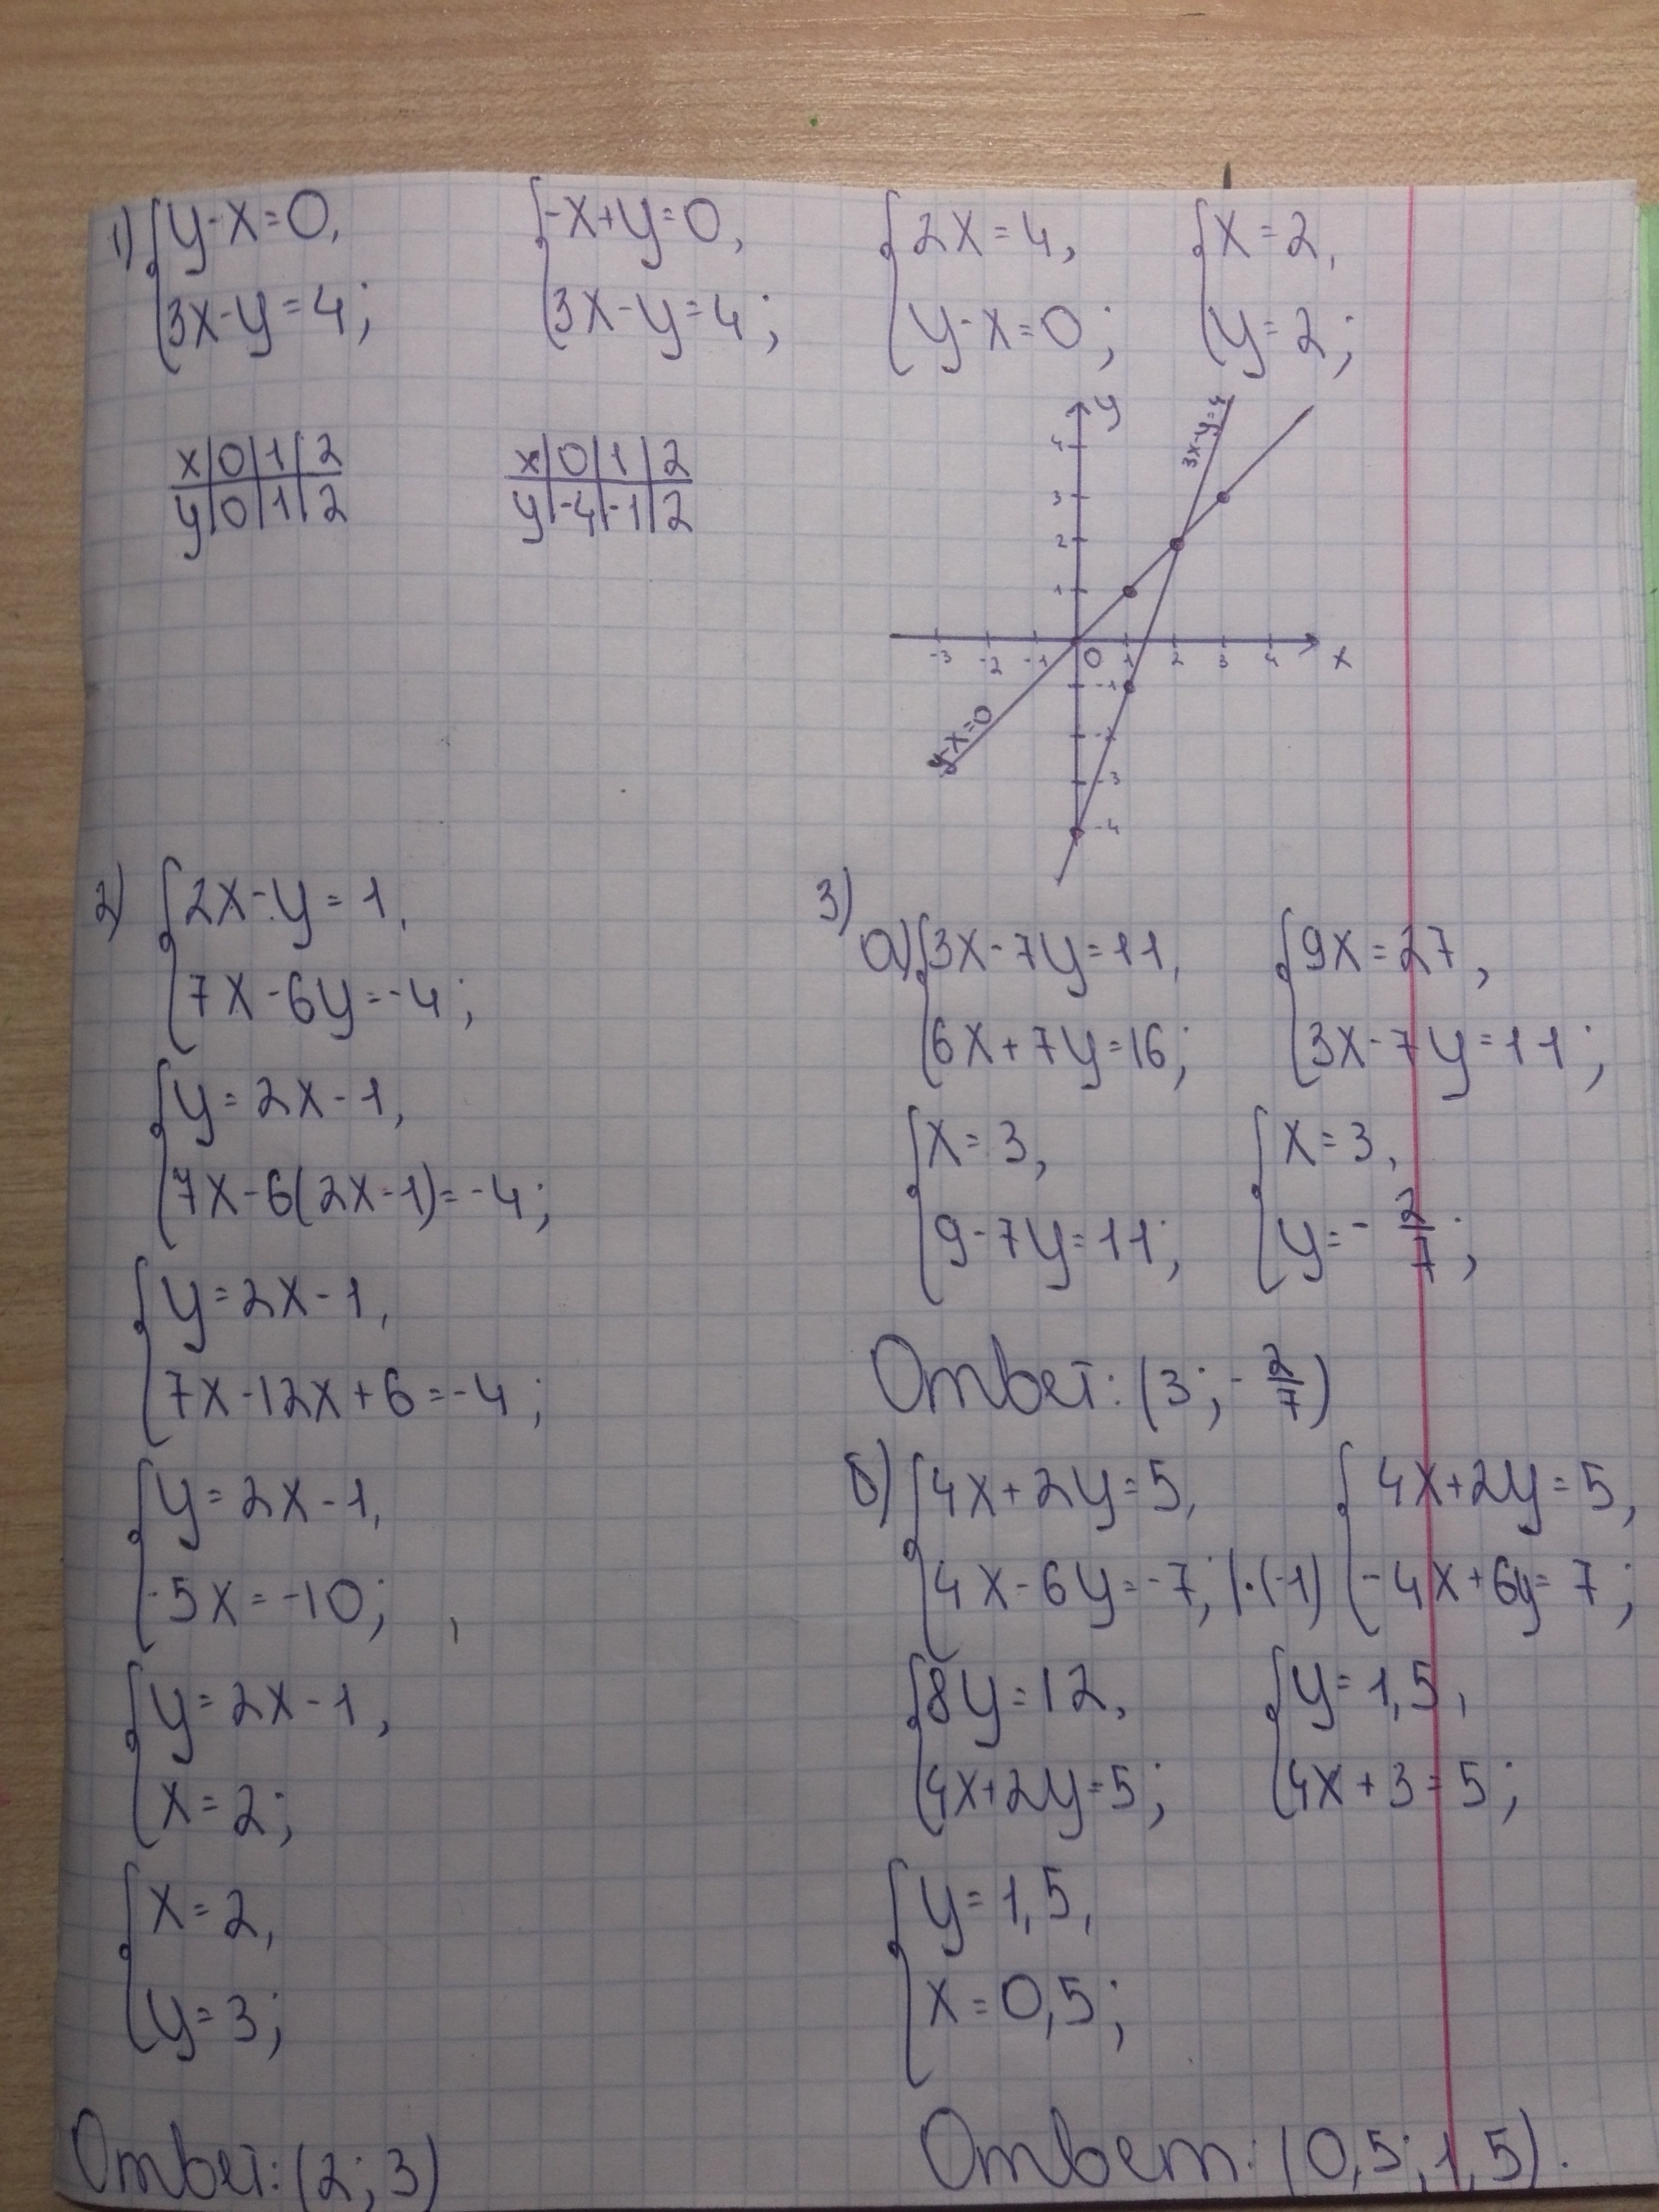 1) { y-x=0, { -x+y=0, { 2x=4, { x=2,
3x-y=4; 3x-y=4; y-x=0; y=2;
x | 0 | 1 | 2
y | 0 | 1 | 2
x | 0 | 1 | 2
y | -4 | -1 | 2
y
3x-y=4
4
3
2
1
-3 -2 -1 0 1 2 3 4 x
-1
-2
-3
-4
y-x=0
2) { 2x-y=1,
7x-6y=-4;
{ y=2x-1,
7x-6(2x-1)=-4;
{ y=2x-1,
7x-12x+6=-4;
{ y=2x-1,
-5x=-10;
{ y=2x-1,
x=2;
{ x=2,
y=3;
Ответ: (2; 3)
3)
а) { 3x-7y=11, { 9x=27,
6x+7y=16; 3x-7y=11;
{ x=3, { x=3,
9-7y=11; y=-2/7;
Ответ: (3; -2/7)
б) { 4x+2y=5, { 4x+2y=5,
4x-6y=-7; |·(-1) -4x+6y=7;
{ 8y=12, { y=1,5,
4x+2y=5; 4x+3=5;
{ y=1,5,
x=0,5;
Ответ: (0,5; 1,5).